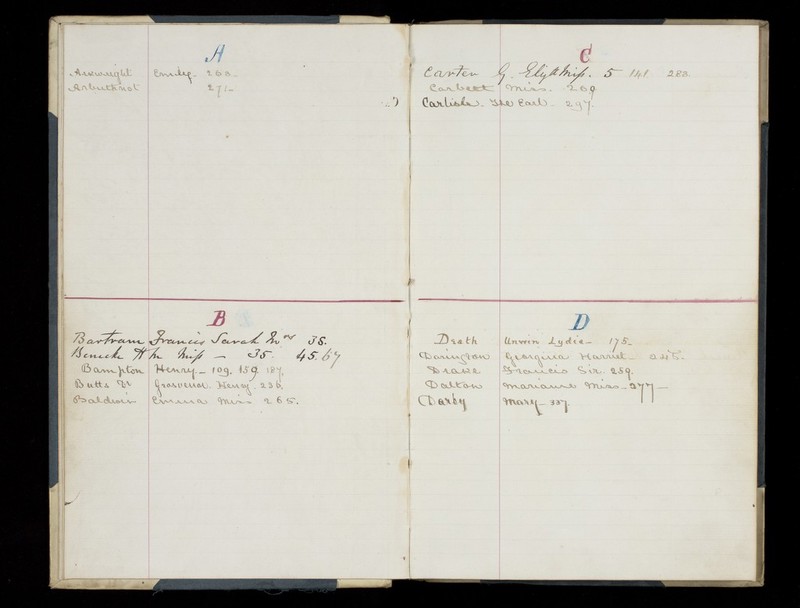 A
Arkwright Emily. 260-
Arbuthnot 271-
B
Bartram Francis Sarah Mrs 35.
Beneche H Miss - 35. 45. 67
Bampton Henry - 109. 159 187.
Butts Dr Grosvenor. Henry. 236.
Baldwin Emma Miss 265.
C
Carter G. Elizth Miss. 5 141 280
Corbett Miss. 209
Carlisle. The Earl - 297.
D
Death Unwin Lydia - 175-
Georgina Harriet -
Drake Francis Sir. 289.
Dalton Marianne Miss - 277 -
Darby Mary - 337.